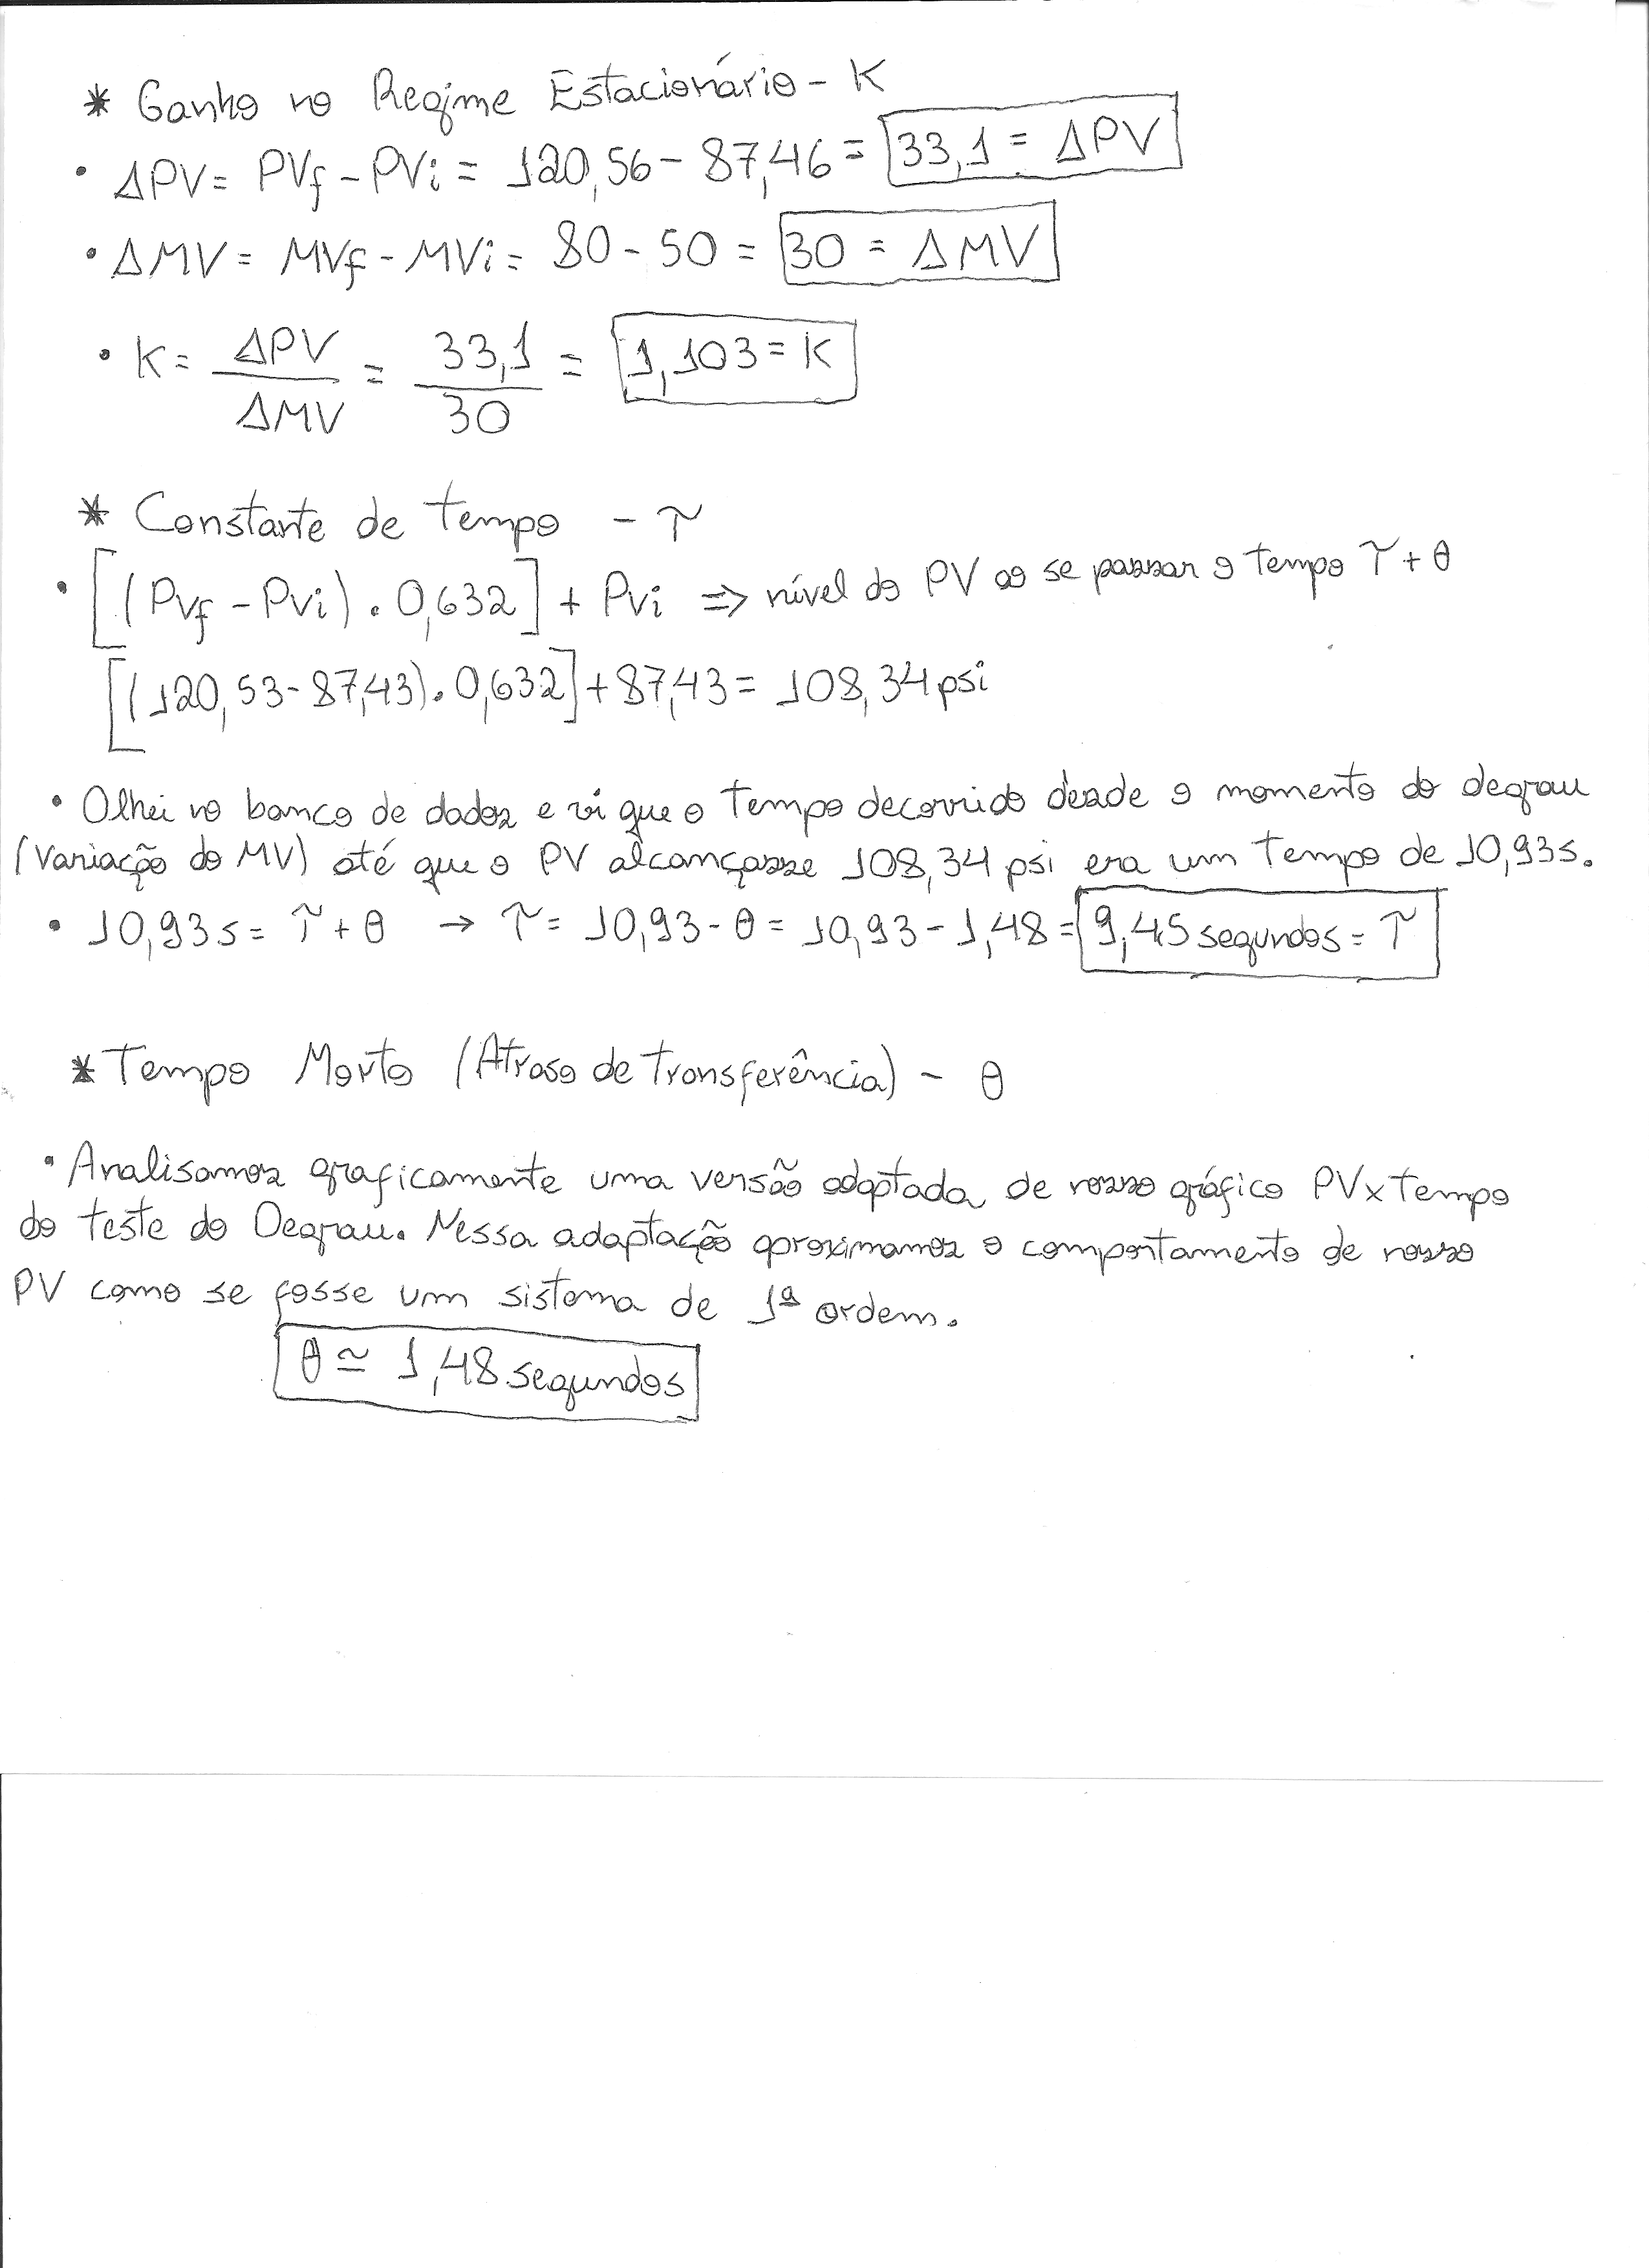 * Ganho no Regime Estacionário - K
• ΔPV = PVf - PVi = 120,56 - 87,46 = 33,1 = ΔPV
• ΔMV = MVf - MVi = 80 - 50 = 30 = ΔMV
• K = ΔPV / ΔMV = 33,1 / 30 = 1,103 = K
* Constante de Tempo - τ
• [(PVf - PVi) . 0,632] + PVi ⇒ nível do PV ao se passar o tempo τ + θ
[(120,53 - 87,43) . 0,632] + 87,43 = 108,34 psi
• Olhei no banco de dados e vi que o tempo decorrido desde o momento do degrau
(Variação do MV) até que o PV alcançasse 108,34 psi era um tempo de 10,93s.
• 10,93s = τ + θ → τ = 10,93 - θ = 10,93 - 1,48 = 9,45 segundos = τ
* Tempo Morto (Atraso de Transferência) - θ
• Analisamos graficamente uma versão adaptada de nosso gráfico PV x Tempo
do teste do Degrau. Nessa adaptação aproximamos o comportamento de nosso
PV como se fosse um sistema de 1ª ordem.
θ ≃ 1,48 segundos